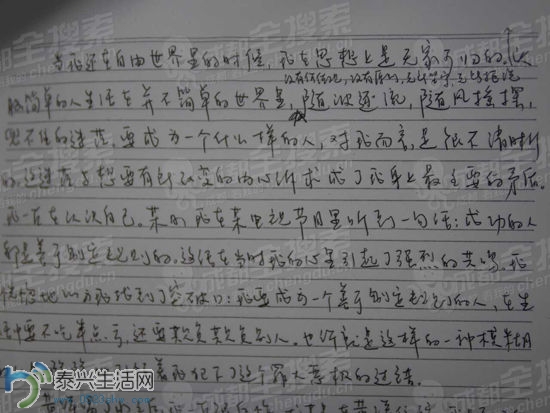 当我还在自由世界里的时候，我在思想上是无家可归的，以
没有信仰，没有原则，无
极简单的人生活在并不简单的世界里，随波逐流，随风摇摆，
的迷茫。要成为一个什么样的人，对我而言，是很不清晰
的。这迷茫与想要有所改变的内心诉求成了我身上最主要的矛盾。
我一直在认识自己。某日我在某电视节目里听到一句话：成功的人
都是善于制定规则的。这话在当时我的心里引起了强烈的共鸣，我
地以为我找到了突破口：我要成为一个善于制定规则的人，在生
活中要不吃半点亏，还要欺负欺负别人。也许就是这样的一种模糊
而犯下了这个罪大恶极的过错。
泰兴生活网
成都全搜索